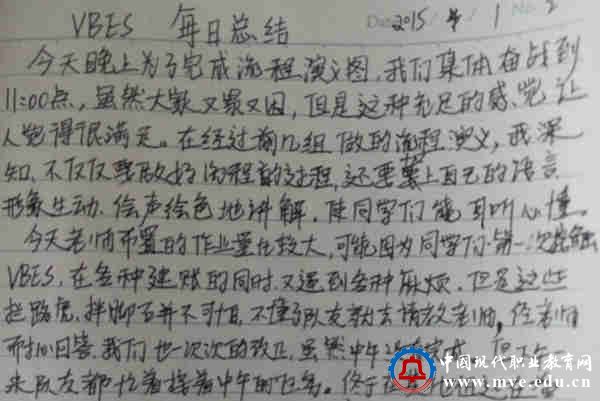 VBES 每日总结
Date 2015 / 4 / 1 No. 2
今天晚上为了完成流程演义图,我们集体奋战到
11:00点,虽然大家又累又困,但是这种充足的感觉让
人觉得很满足。在经过前几组做的流程演义,我深
知,不仅仅要做好流程的过程,还要加上自己的语言
形象生动、绘声绘色地讲解,使同学们能耳听心懂。
今天老师布置的作业量比较大,可能因为同学们第一次接触
VBES,在各种建账的同时又遇到各种麻烦,但是这些
拦路虎、绊脚石并不可怕,不懂的队友就去请教老师,经老师
耐心回答,我们也一次次的改正,虽然中午没有完成,但下午
来队友都忙着接着中午的任务。终于
中国现代职业教育网
www.mve.edu.cn